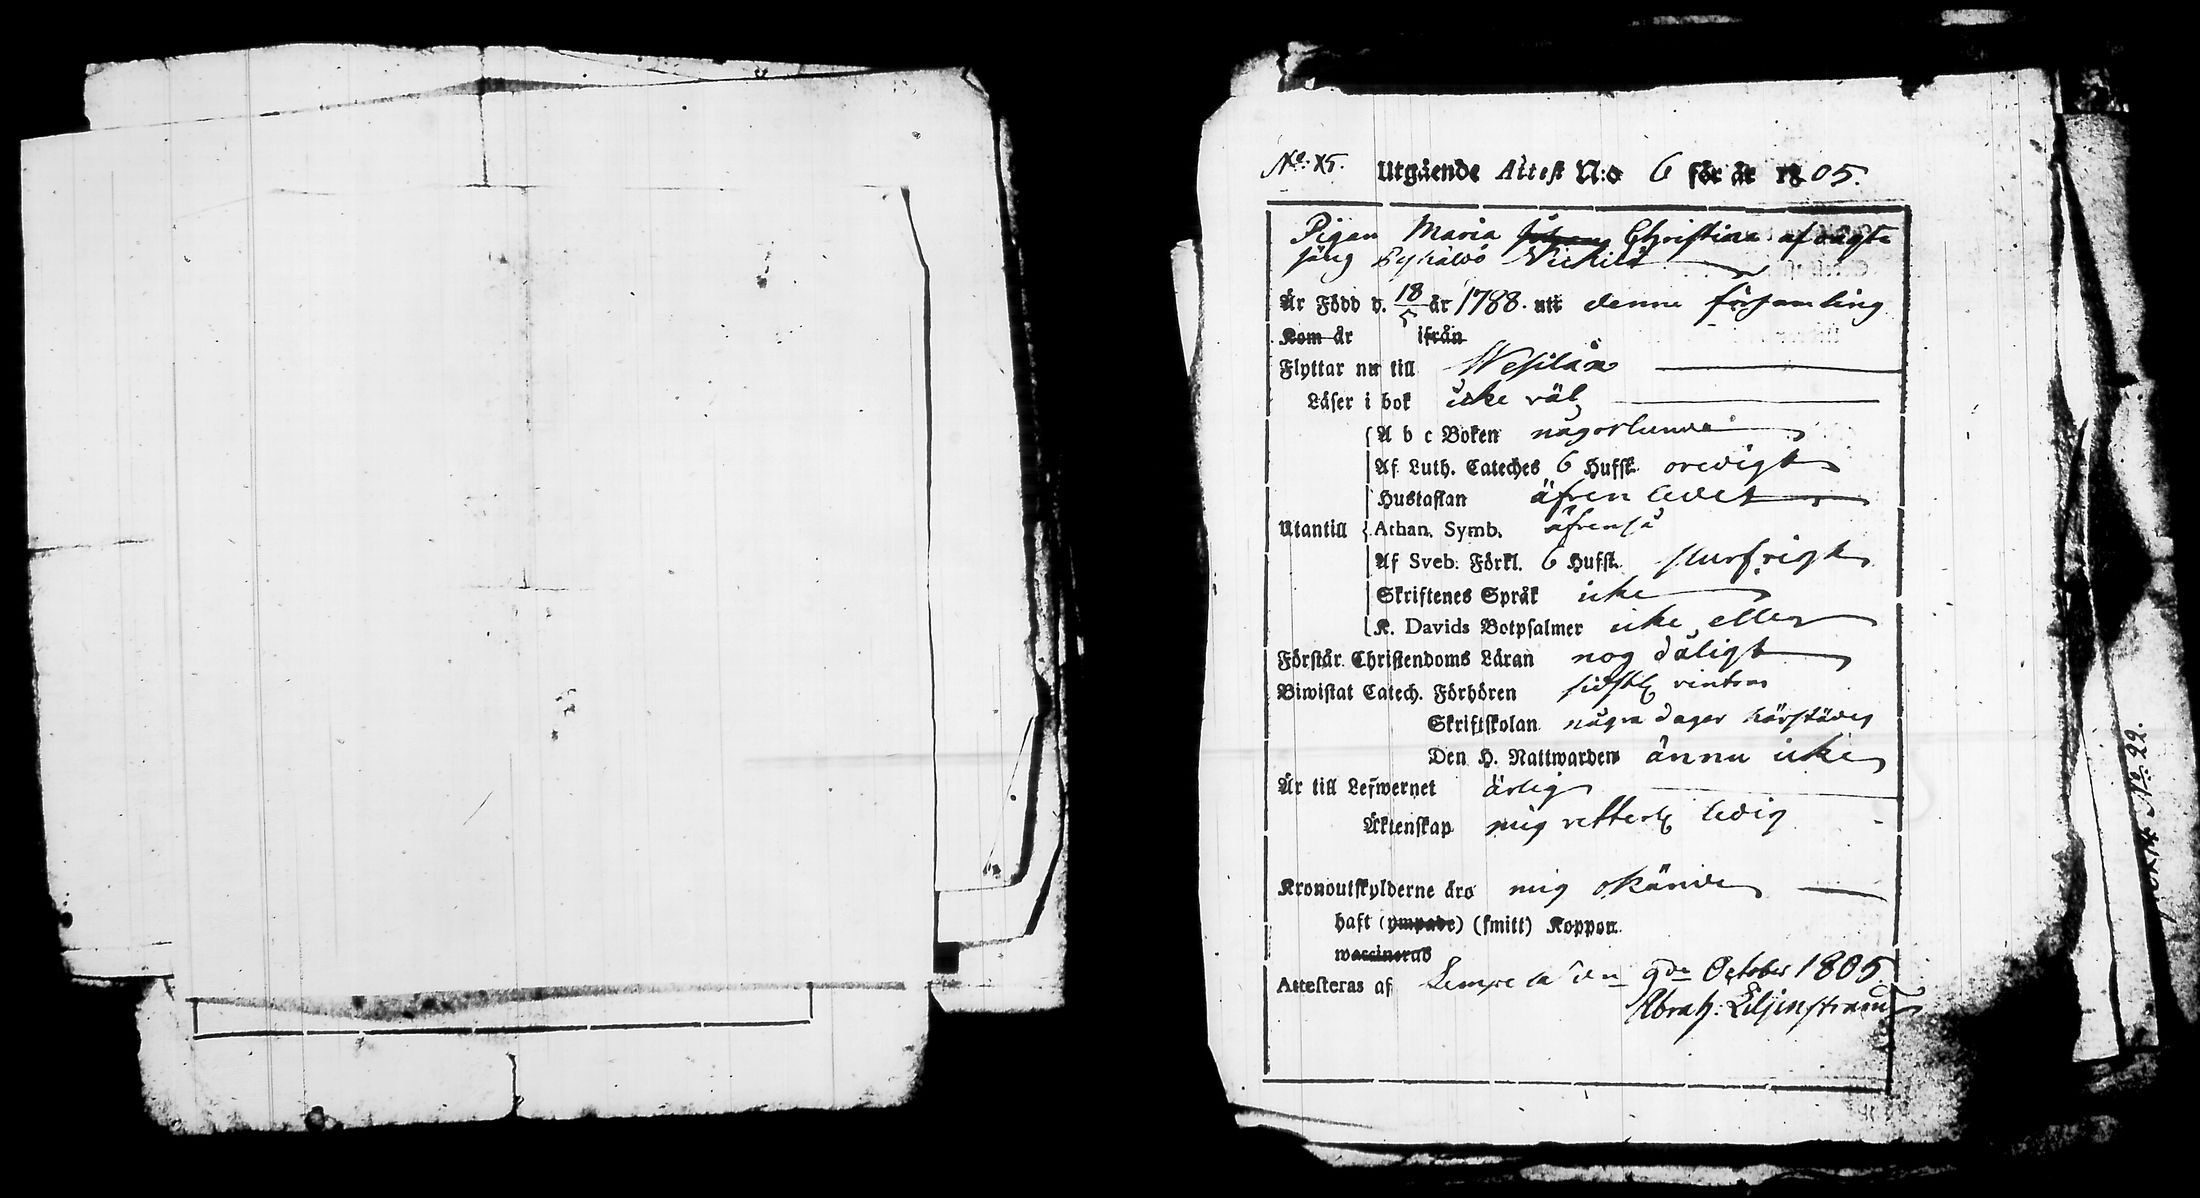 No: 15. Utgående Attest N:o 6 för år 1805.
Pigan Maria Christina
Är Född d. 18/5 år 1788. uti denne församling
Kom år ifrån
Flyttar nu till Wesilax
Läser i bok icke väl
A b c Boken någorlunda
Af Luth. Cateches 6 Hufst. oredigt
Hustaflan äfvenledes
Utantill Athan. Symb. äfvenså
Af Sveb. Förkl. 6 Hufst. slurfvigt
Skriftenes Språk icke
K. Davids Botpsalmer icke eller
Förstår Christendoms Läran nog dåligt
Biwistat Catech. Förhören sidstl. vintras
Skriftskolan några dagar härstädes
Den H. Nattwarden ännu icke
Är till Lefwernet ärlig
Äktenskap mig vetterl. ledig
Kronoutskylderne äro mig okände
haft (ympade) (smitt) Koppor
waccinerad
Attesteras af Lempela den 9de October 1805.
Abrah: Liljenstrand
No 22.